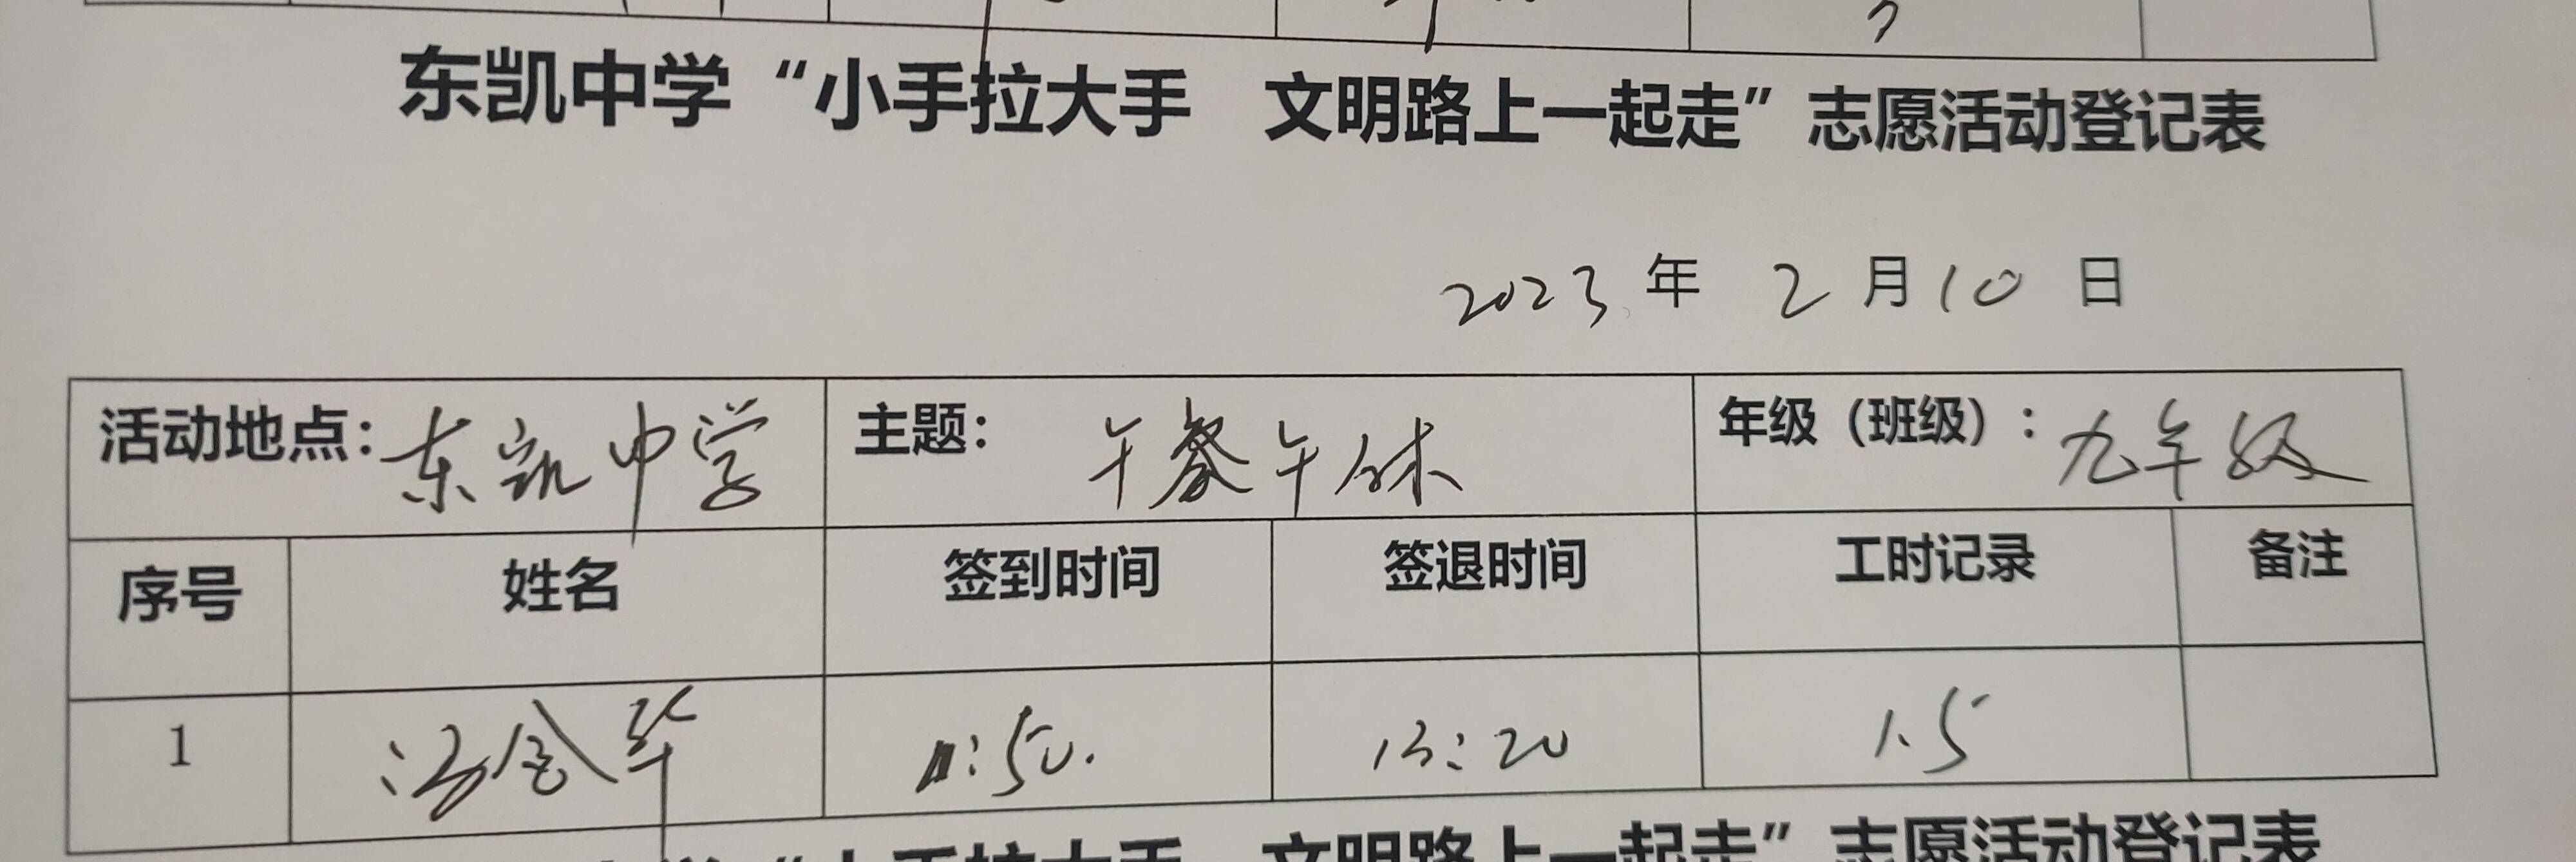 东凯中学“小手拉大手 文明路上一起走”志愿活动登记表
2023年 2月10日
活动地点：东凯中学 主题： 午餐午休 年级（班级）：九年级
序号 姓名 签到时间 签退时间 工时记录 备注
1 汤金华 11:50. 13:20 1.5
学“小手拉大手 文明路上一起走”志愿活动登记表